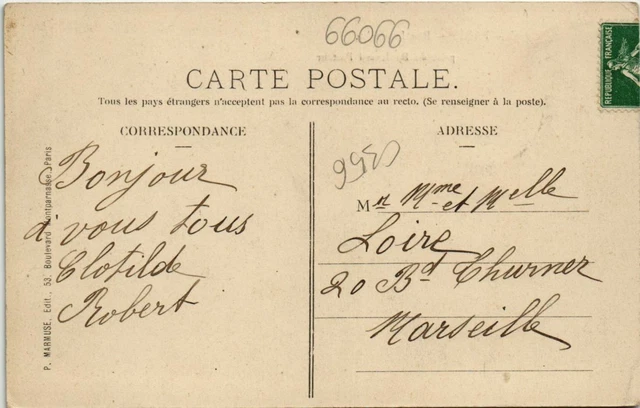 66066
CARTE POSTALE.
Tous les pays étrangers n'acceptent pas la correspondance au recto. (Se renseigner à la poste).
CORRESPONDANCE
Bonjour
à vous tous
Clotilde
Robert
P. MARMUSE, Edit., 53, Boulevard Montparnasse, Paris
ADRESSE
Mr Mme et Melle
Loire
20 Bd Thurner
Marseille
REPUBLIQUE FRANÇAISE